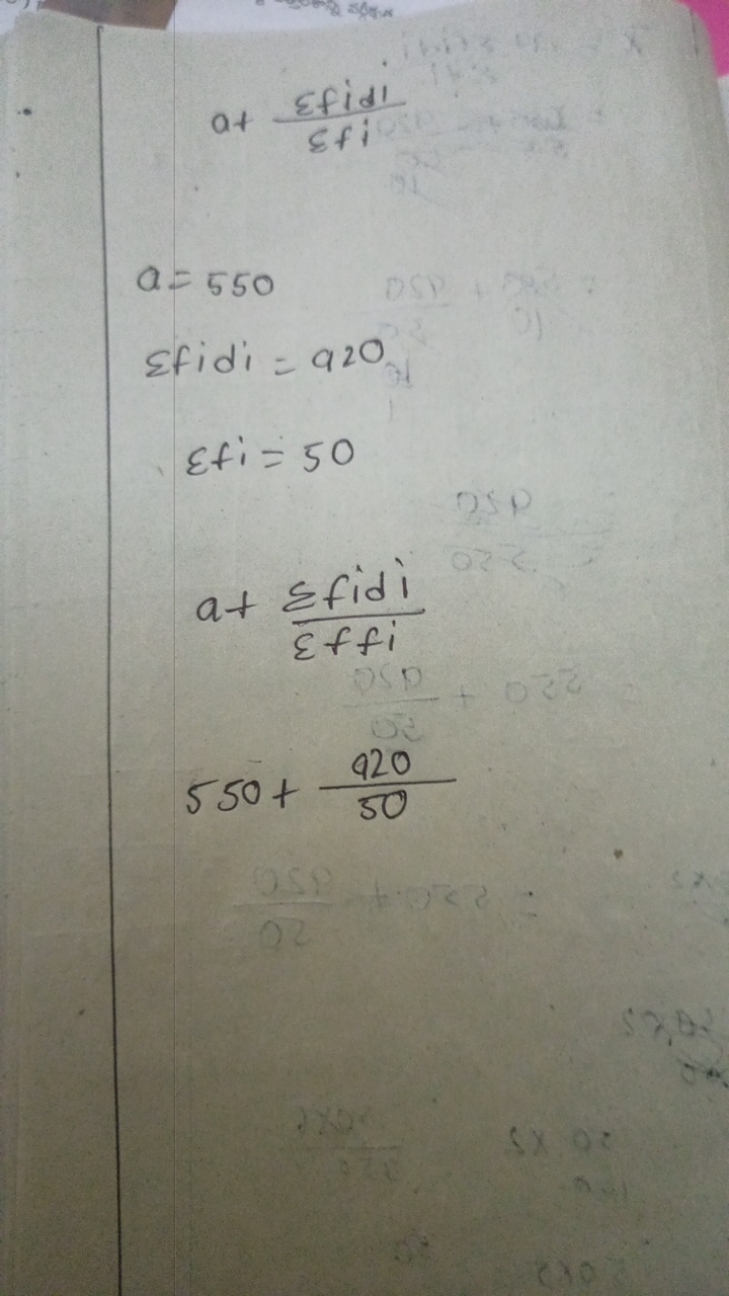 a+ Σfidi
Σfi
a = 550
Σfidi = 920
Σfi = 50
a+ Σfidi
Σffi
550+ 920
50